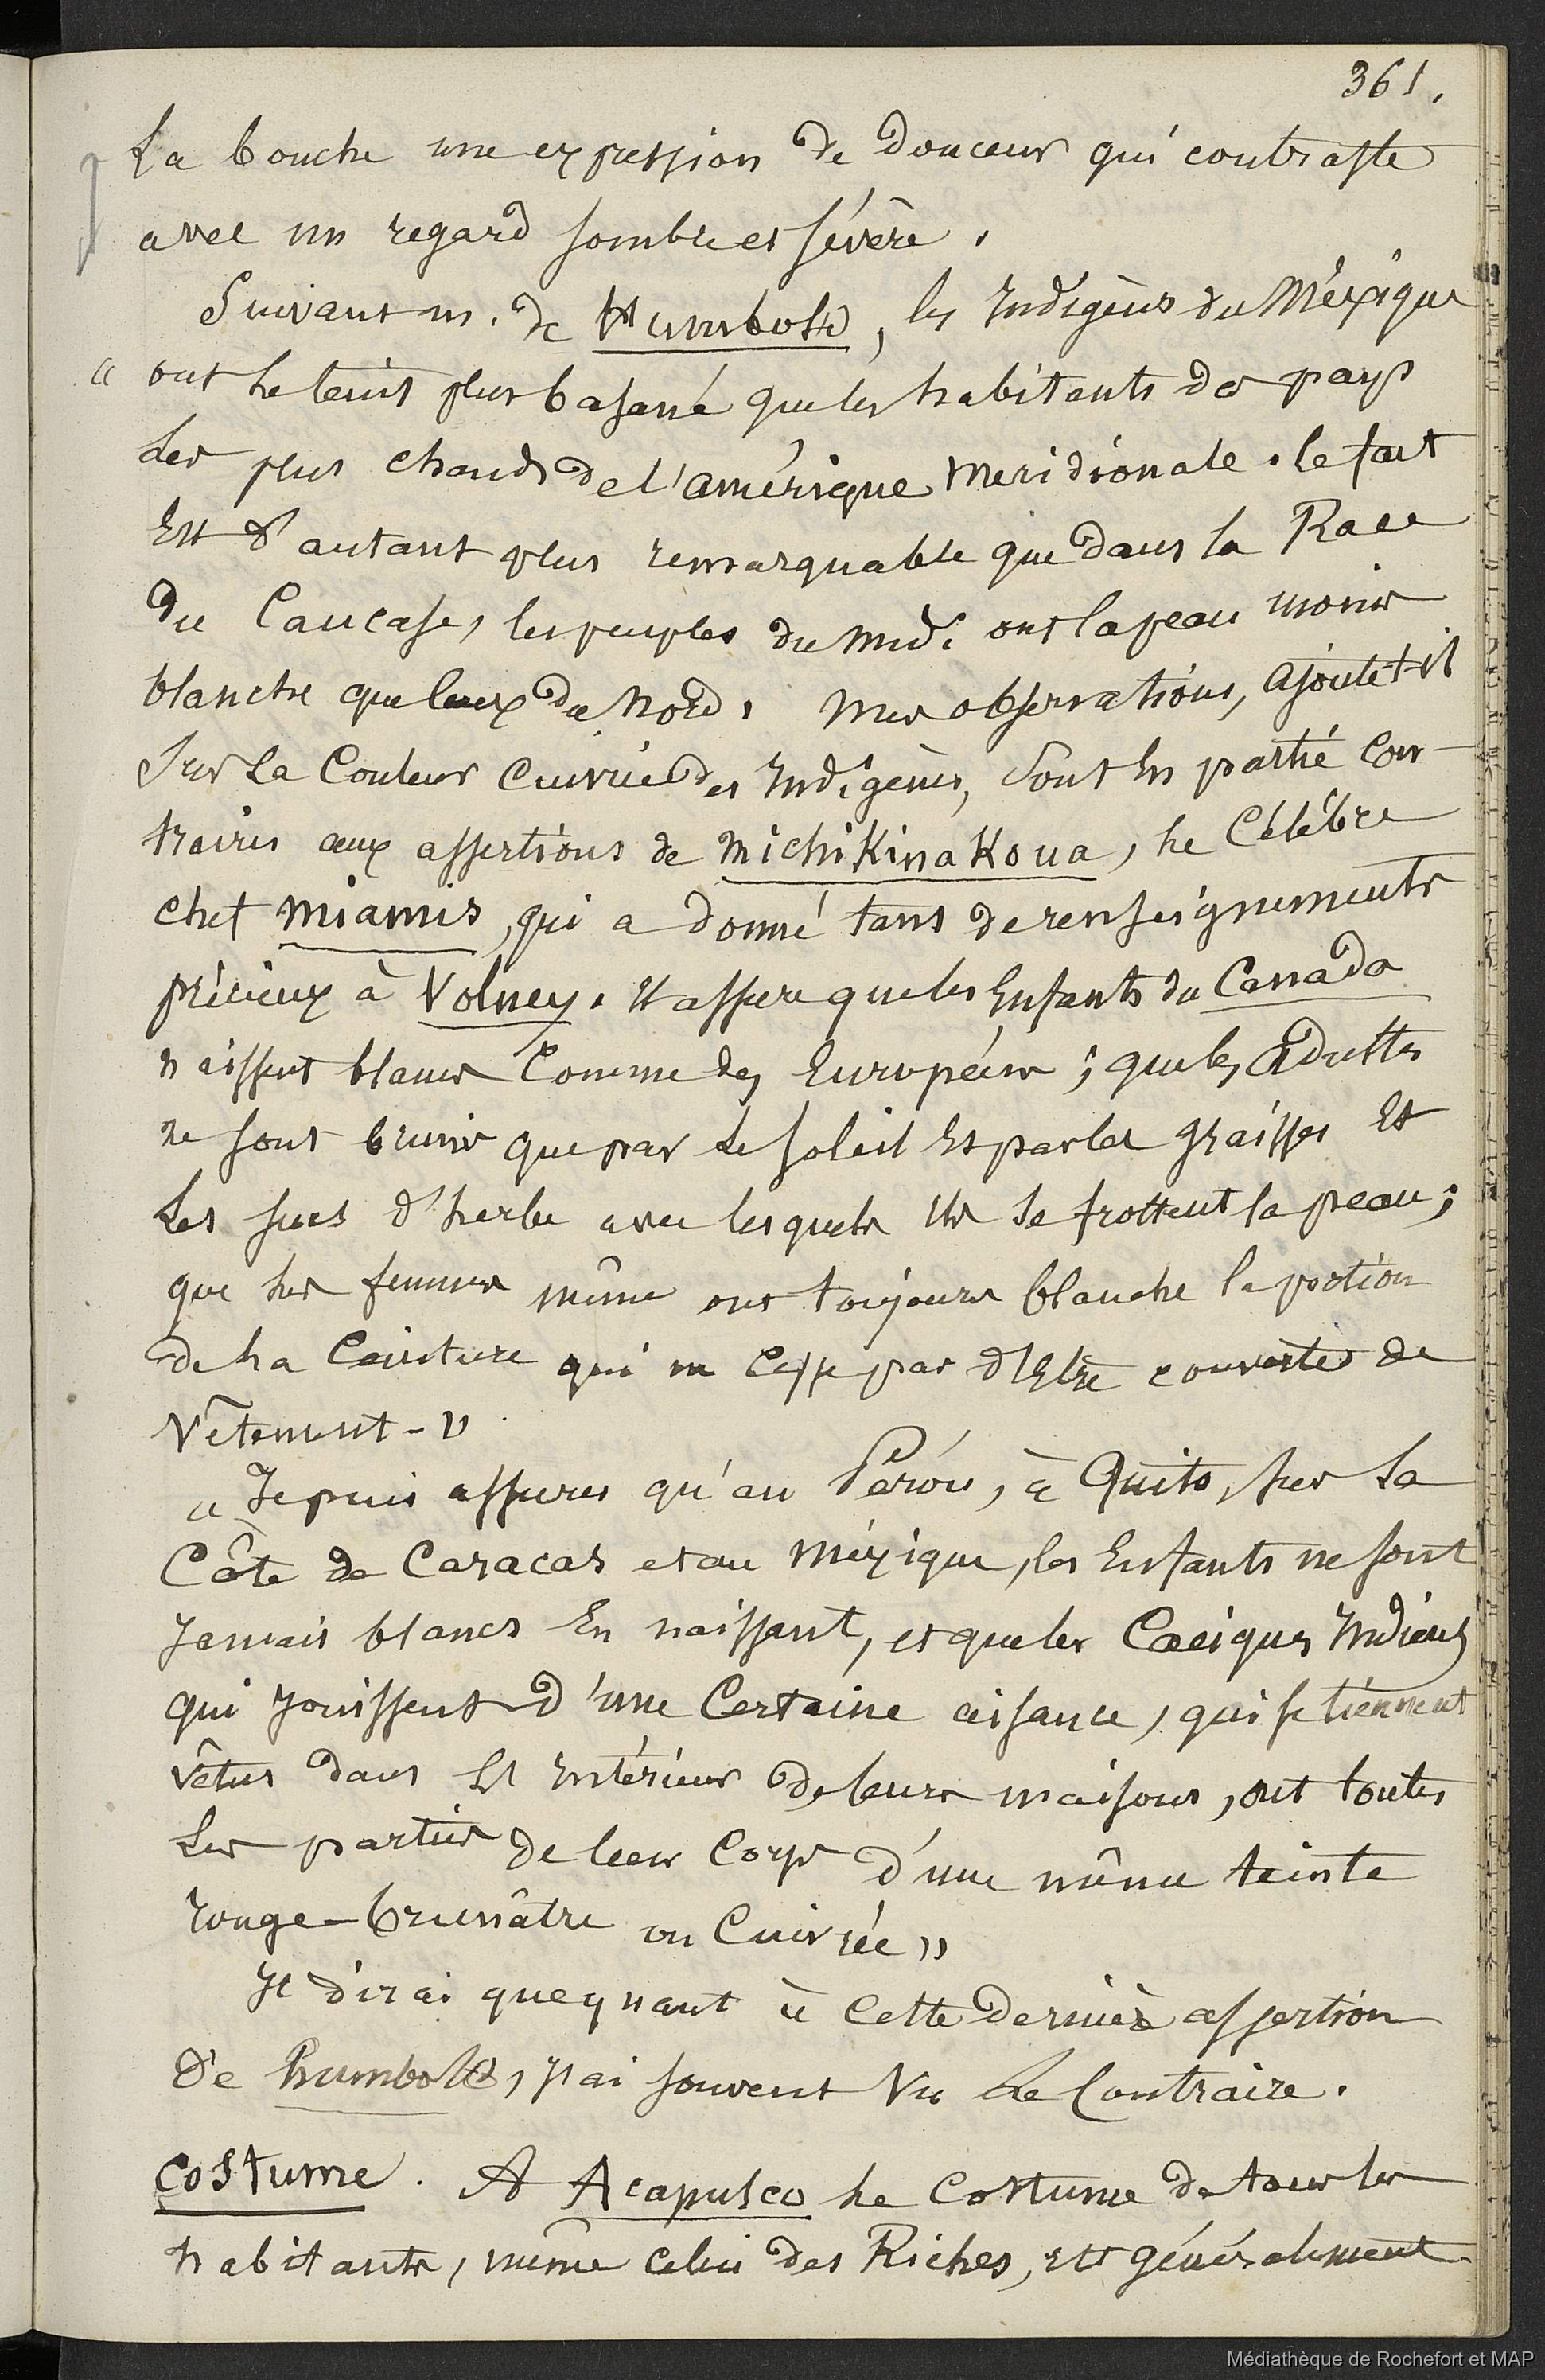 361.
La bouche une expression de douceur qui contraste
avec un regard sombre et sévère.
Suivant m. de Humboldt, les Indigènes du Méxique
« ont le teint plus basané que les habitants des pays
les plus chauds de l'amérique meridionale. le fait
Est d'autant plus remarquable que dans la Race
du Caucase, les peuples du midi ont la peau moins
blanche que ceux du Nord. Mes observations, ajoute t-il
Sur la Couleur Cuivrée des Indigènes, Sont En partie Con-
traires aux assertions de MichiKinaKoua, le Célébre
chef Miamis, qui a donné tant de renseignements
précieux à Volney. Il assure que les Enfants du Canada
naissent blancs Comme des Européens; que les Adultes
ne sont brunis que par le soleil Et par les graisses Et
Les sucs d'herbe avec lesquels ils se frottent la peau;
que les femmes même ont toujours blanche la portion
de la Ceinture qui ne Cesse pas d'Etre couverte de
Vêtement - »
« Je puis assurer qu'au Pérou, à Quito, sur la
Côte de Caracas et au Méxique, les Enfants ne sont
Jamais blancs En naissant, et que les Caciques Indiens
qui Jouissent d'une Certaine aisance, qui se tiennent
vêtus dans l'Intérieur de leurs maisons, ont toutes
Les parties de leur Corps d'une même teinte
rouge-brunâtre ou Cuivrée »
Je dirai que quant à Cette dernière assertion
De humboldt, J'ai souvent Vu Le Contraire.
Costume. A Acapulco le Costume de tous les
habitants, même celui des Riches, est généralement
Médiathèque de Rochefort et MAP